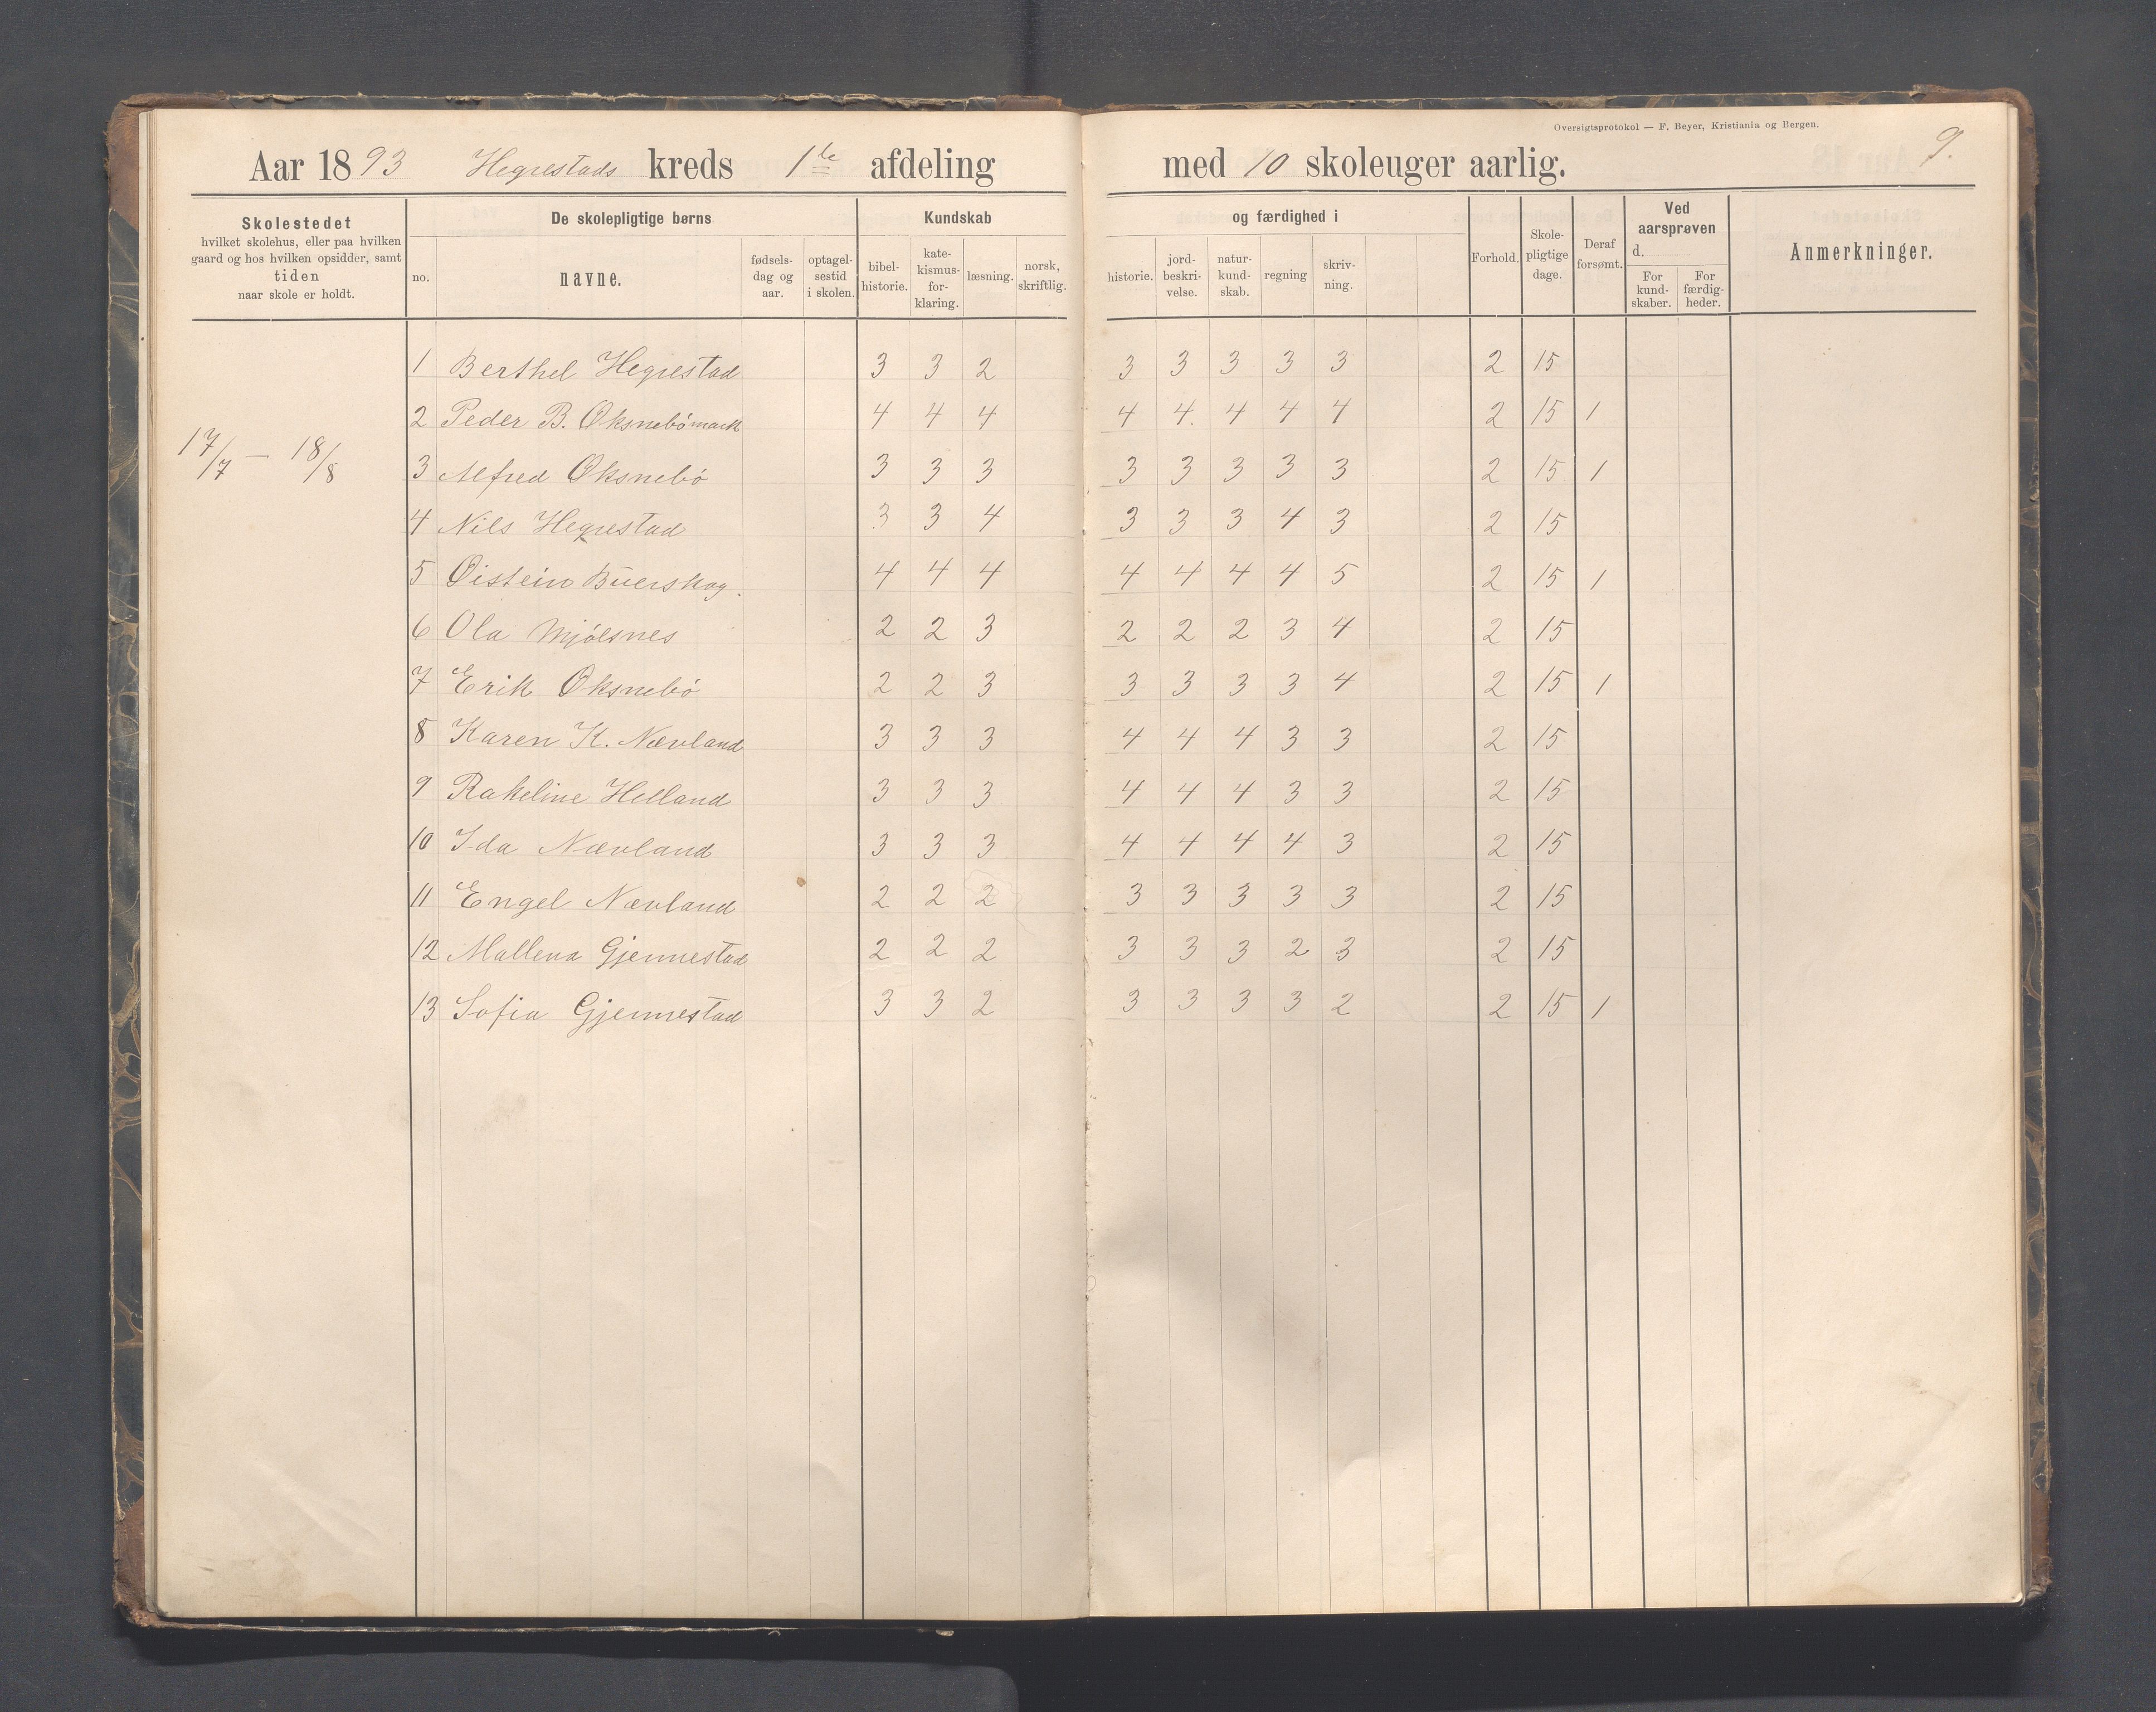 Oversigtsprotokol — F. Beyer, Kristiania og Bergen.
9.
Aar 1893 Hegrestads kreds 1ste afdeling med 10 skoleuger aarlig.
Skolestedet
hvilket skolehus, eller paa hvilken
gaard og hos hvilken opsidder, samt
tiden
naar skole er holdt.
De skolepligtige børns
no.
navne.
fødsels-
dag og
aar.
optagel-
sestid
i skolen.
Kundskab
bibel-
historie.
kate-
kismus-
for-
klaring.
læsning.
norsk,
skriftlig.
og færdighed i
historie.
jord-
beskri-
velse.
natur-
kund-
skab.
regning
skriv-
ning.
Forhold.
Skole-
pligtige
dage.
Deraf
forsømt.
Ved
aarsprøven
d.
For
kund-
skaber.
For
færdig-
heder.
Anmerkninger.
17/7 — 18/8
1 Berthel Hegrestad 3 3 2 3 3 3 3 3 2 15
2 Peder B. Oksnebómark 4 4 4 4 4. 4 4 4 2 15 1
3 Alfred Oksnebó 3 3 3 3 3 3 3 3 2 15 1
4 Nils Hegrestad 3 3 4 3 3 3 4 3 2 15
5 Øistein Buerskog. 4 4 4 4 4 4 4 5 2 15 1
6 Ola Mjólsnes 2 2 3 2 2 2 3 4 2 15
7 Erik Oksnebó 2 2 3 3 3 3 3 4 2 15 1
8 Karen K. Nævland 3 3 3 4 4 4 3 3 2 15
9 Rakeline Helland 3 3 3 4 4 4 3 3 2 15
10 Ida Nævland 3 3 3 4 4 4 4 3 2 15
11 Engel Nævland 2 2 2 3 3 3 3 3 2 15
12 Mallena Gjennestad 2 2 2 3 3 3 2 3 2 15
13 Sofia Gjennestad 3 3 2 3 3 3 3 2 2 15 1